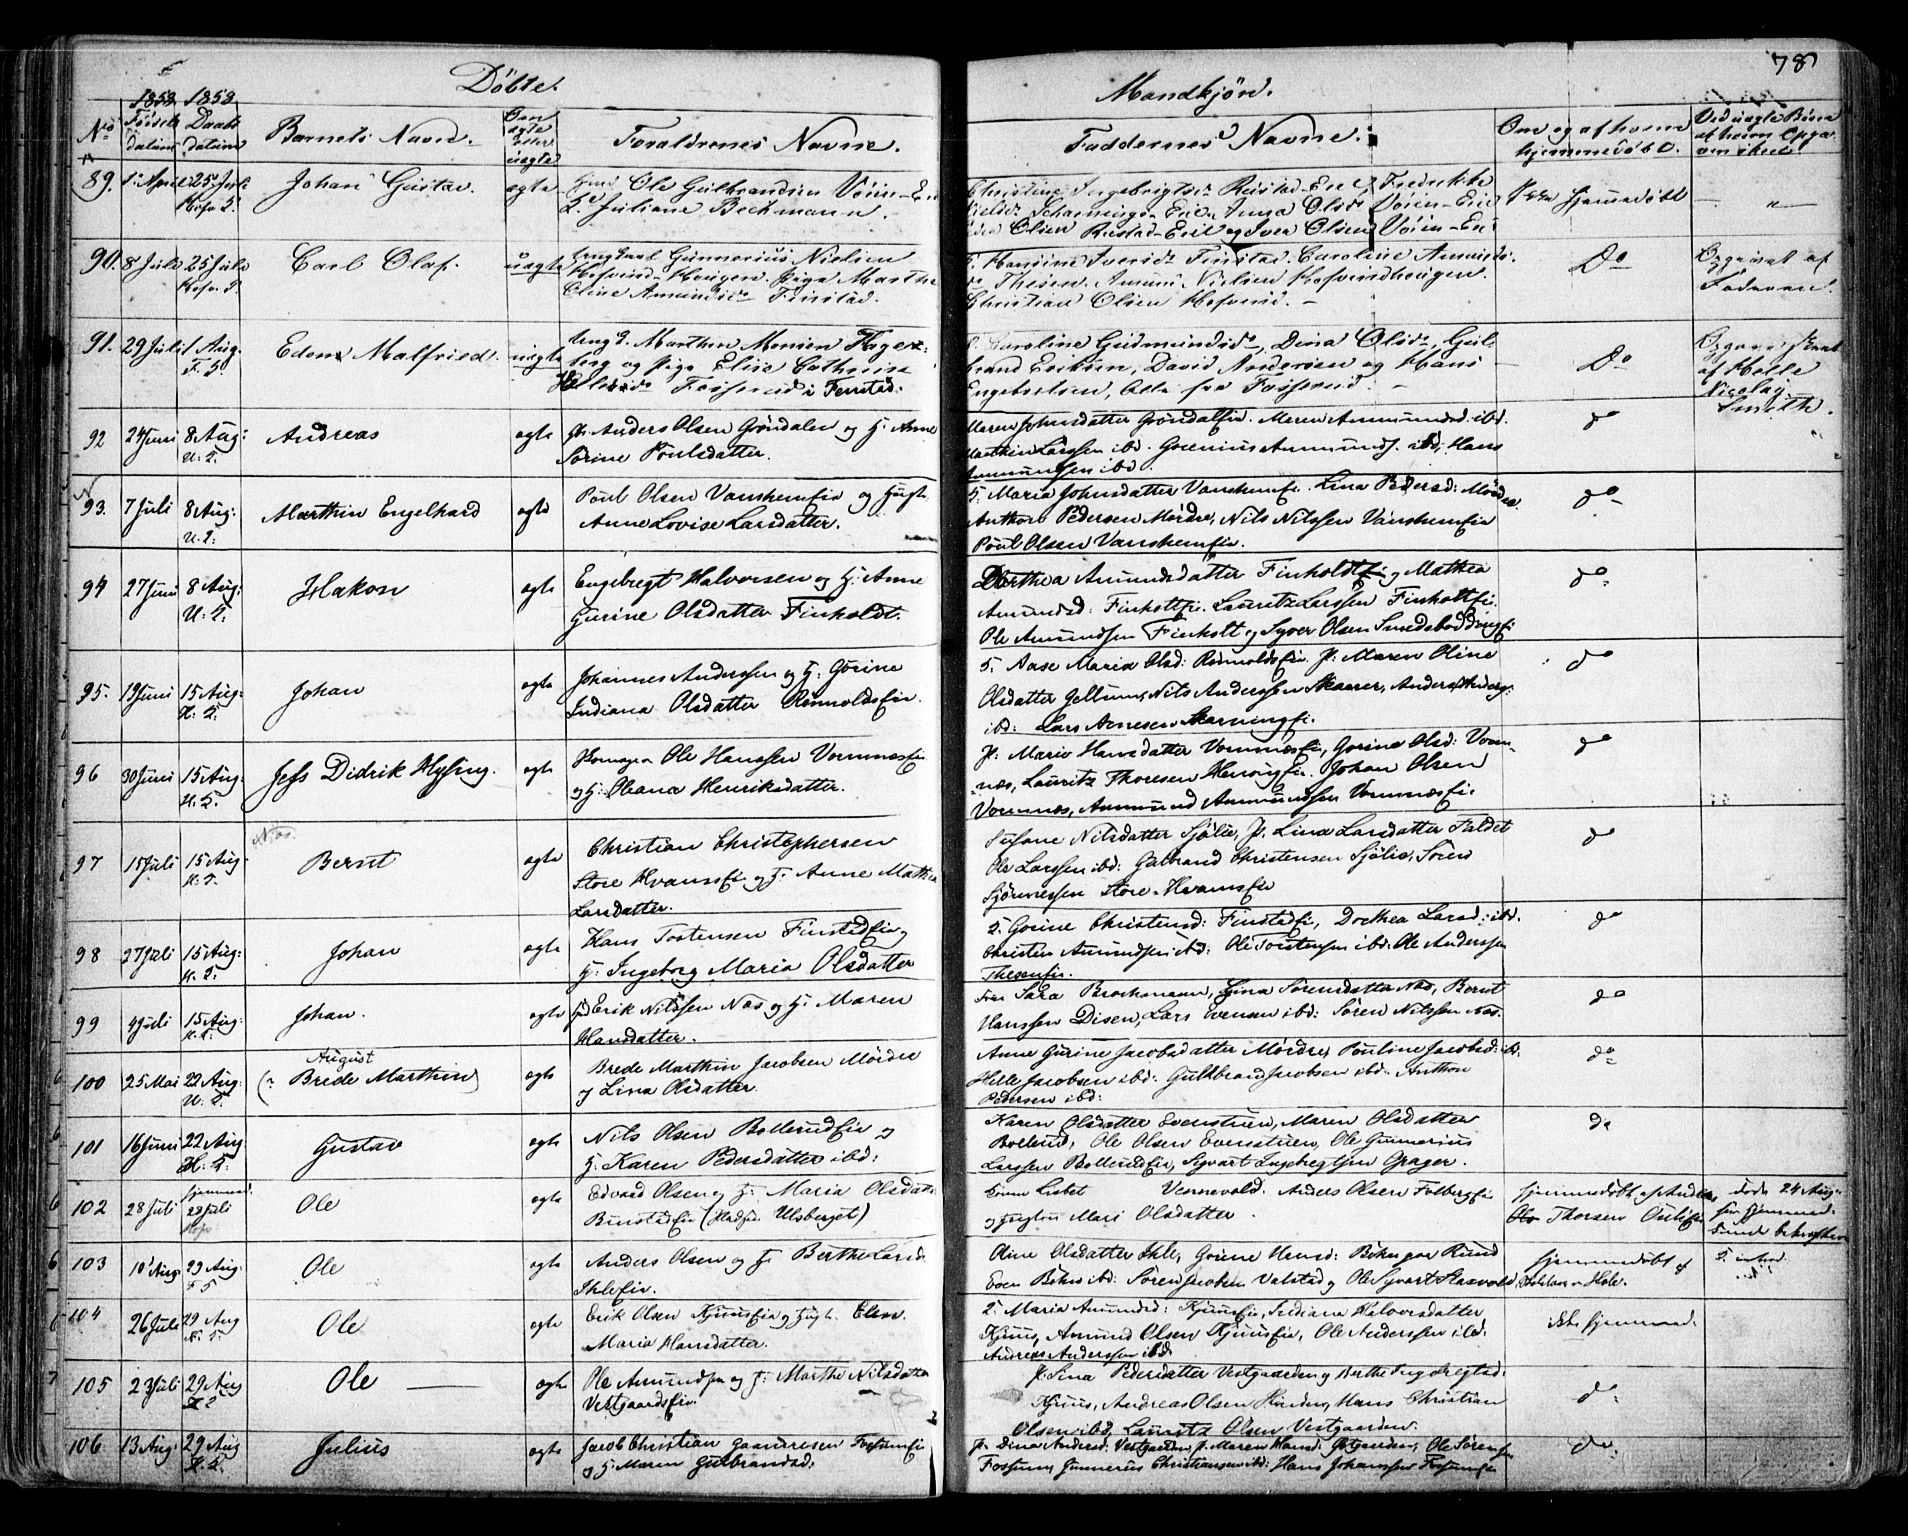 78
Döbte.
Mandkjön.
No
1853. Födsels datum
1853 Daabs datum
Barnets Navn.
Om ægte eller uægte
Forældrenes Navne.
Faddernes Navne.
Om og af hvem hjemmedöbt.
Ved uægte Börn af hvem Opga- ven skeet.
89. 1 April 25 Juli Johan Gustav. ægte Ole Gulbrandsen Vöien-Eie
Juliane Beckmann.
Christine Ingebrigtsdr Reistad-Eie, Fredrikke
Anna Olsdr Vöien-Eie
Olsen Reistad-Eie og Iver Olsen Vöien-Eie
hjemmedöbt
90. 8 Juli 25 Juli Carl Olaf. uægte Ungkarl Gunnerius Nielsen
Hofvind-Haugen. Pige Marthe
Oline Amundsdr Finstad.
Hansine Iversdr Finstad. Caroline Amunds-
dr Thesen. Amund Nielsen Hofvindhougen.
Christian Olsen Hofvind. -
Do
Opgivet af Faderen.
91. 29 Juli 1 Aug. F. K. Edon Malfried. uægte Ung. Marthin Monsen Hager-
berg og Pige Elise Cathrine
Fosserud i Finstad.
Caroline Gudmundsdr, Dina Olsdr, Gul-
brand Eriksen, David Andersen og Hans
Engebretsen, Alle fra Fosserud. -
Do
af Helle Nicolay Smith.
92 24 Juni 8 Aug: U: K. Andreas ægte Gr. Anders Olsen Gröndalen og H: Anne
Sörine Poulsdatter.
Maren Johnsdatter Gröndalen. Maren Ammundsd: ibd.
Marthin Larssen ibd. Grenius Ammunds. ibd, Hans
Ammundsen ibd.
do
93. 7 Juli 8 Aug: U. K: Marthin Engelhard ægte Poul Olsen Vanshemeie og Hust.
Anne Lovise Larsdatter.
Maria Johnsdatter Vanshemeie. Lina Pedersd: Mördre
Anthon Pedersen Mördre, Nils Nilssen Vanshemeie
Poul Olsen Vanshemeie.
do
94 27 Juni 8 Aug: U: K. Hakon ægte Engebregt Halvorsen og H: Anne
Gurine Olsdatter Finholdt.
Dorthea Amundsdatter Finholdt og Mathea
Amundsd: Finholteie. Lauritz Larssen Finholteie.
Ole Amundsen Finholt og Syver Olsen
do
95. 19 Juni 15 Aug: H: K. Johan ægte Johannes Anderssen og H: Gorine
Indiana Olsdatter Römoldseie.
Aase Maria Olsd: Römoldseie. P: Maren Oline
Olsdatter Gellum, Nils Anderssen Skaarer, Anders
ibd: Lars Arnesen Skarningeie.
do
96 30 Juni 15 Aug: H. K. Jess Didrik Hysing. ægte Ole Hanssen Vormnæseie
og H: Oleana Henriksdatter.
P: Marie Hansdatter Vormnæseie, Gorine Olsd: Vorm-
næs, Lauritz Thoresen Johan Olsen
Vormnæs, Ammund Ammundsen Vormnæseie.
do
97 15 Juli 15 Aug: H. K. Næs. Bernt ægte Christian Christophersen
Store Hvamseie og H: Anne Mathea
Larsdatter.
Susane Nilsdatter Sjölie, P. Lina Larsdatter Faldet
Ole Larssen ibd: Gulbrand Christensen Sjölie, Sören
Store-Hvamseie
do
98 27 Juli 15 Aug: H. K: Johan ægte Hans Tostensen Finstadeie og
H: Ingeborg Maria Olsdatter
Gorine Christensd: Finstadeie, Dorthea Larsd: ibd.
Christen Amundsen ibd: Ole Torstensen ibd: Ole Anderssen
Theseneie.
do
99 4 Juli 15 Aug: H. K: Johan. ægte Erik Nilssen Næs og H: Maren
Hansdatter.
Sara Brockmann, Gina Sörensdatter Næs, Bernt
Hanssen Disen, Lars Evensen ibd: Sören Nilssen Næs.
do
100 25 Mai 22 Aug: U: K. August (Brede Marthin) ægte Brede Marthin Jacobsen Mördre
og Lina Olsdatter
Anne Gurine Jacobsdatter Mördre, Pouline Jacobsd: ibd.
Helle Jacobsen ibd: Guldbrand Jacobsen ibd. Anthon
Pedersen ibd:
do
101 16 Juni 22 Aug H: K: Gustav ægte Nils Olsen Bollerudeie og
H: Karen Pedersdatter ibd:
Karen Olsdatter Evenstuen, Maren Olsdatter
Bollerud, Ole Olsen Evenstuen, Ole Gunnerius
Larssen Bollerudeie, Sigvart Ingebregtsen Grager.
do
102 28 Juli hjemmed. 28 Juli Ole ægte Edvard Olsen og H: Maria Olsdatter
Bunstadeie (Ulsberget)
Vennevold. Anders Olsen Folbergeie
og Mari Olsdatter.
hjemmedöbt af Anders
Thorsen
döde 24 Aug:
103 10 Aug 29 Aug: F. K Ole ægte Anders Olsen og H. Berthe Larsd.
Ihleeie.
Oline Olsdatter Ihle, Gorine Rund
Even Böhn ibd: Sören Jacobsen Valstad og Ole Syvart
hjemmedöbt af
104 26 Juli 29 Aug N. K. Ole ægte Erik Olsen Kjuuseie og Hust. Elen.
Maria Hansdatter.
Maria Amundsd: Kjuuseie, Indiana Halvorsdatter
Kjuus, Amund Olsen Kjuuseie, Ole Anderssen ibd:
Andreas Anderssen ibd.
ikke hjemmed:
105 23 Juli 29 Aug Ole ægte Ole Amundsen og H: Marthe Nilsdatter
Vestgaardseie.
P. Lina Pedersdatter Vestgaarden og Berthe Ingebregtsd:
Kjuus, Andreas Olsen Hans Christian
Olsen ibd, Lauritz Olsen Vestgaarden.
do
106 13 Aug: 29 Aug H. K. Julius ægte Jacob Christian Fossumeie
og H: Maren Gulbrandsd.
P. Dina Andersd: Vestgaarden, P. Maren Hansd: Ole Sörensen
Fossum, Gunnerus Christiansen ibd: Hans Johanssen
do